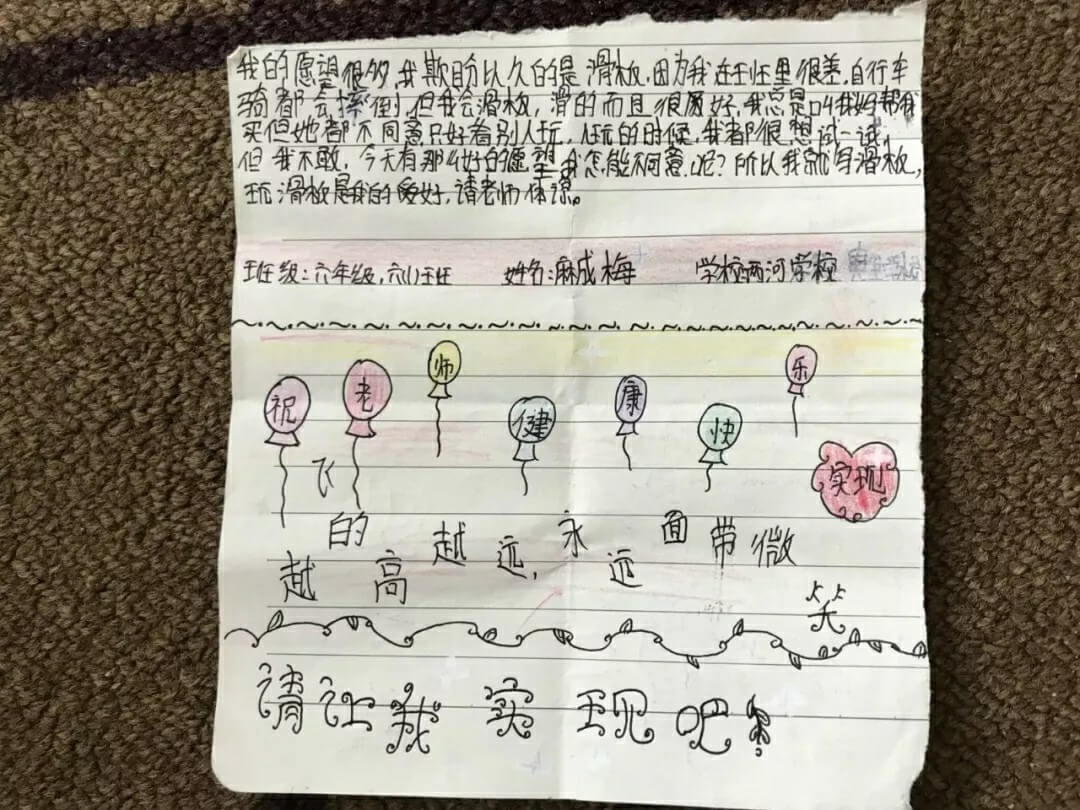 我的愿望很多,我欺盼以久的是滑板.因为我在班里很差.自行车
骑都会摔倒,但我会滑板,滑的而且很好.我总是叫我妈帮我
买但她都不同意只好看别人玩,玩的时候,我都很想试一试,
但我不敢.今天有那么好的愿望我怎能不同意呢?所以我就写滑板,
玩滑板是我的爱好.请老师体谅。
班级:六年级,六(1)班 姓名:麻成梅 学校两河学校
祝老师健康快乐
实现
飞的越高越远,永远面带微笑
请让我实现吧!